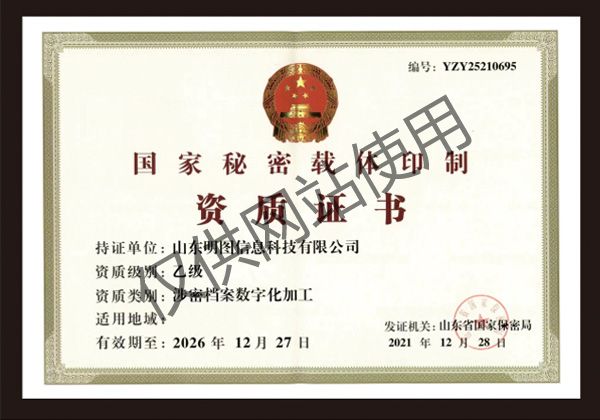 编号: YZY25210695
国家秘密载体印制
资质证书
持证单位: 山东明图信息科技有限公司
资质级别: 乙级
资质类别: 涉密档案数字化加工
适用地域:
有效期至: 2026 年 12 月 27 日
发证机关: 山东省国家保密局
2021 年 12 月 28 日
仅供网站使用